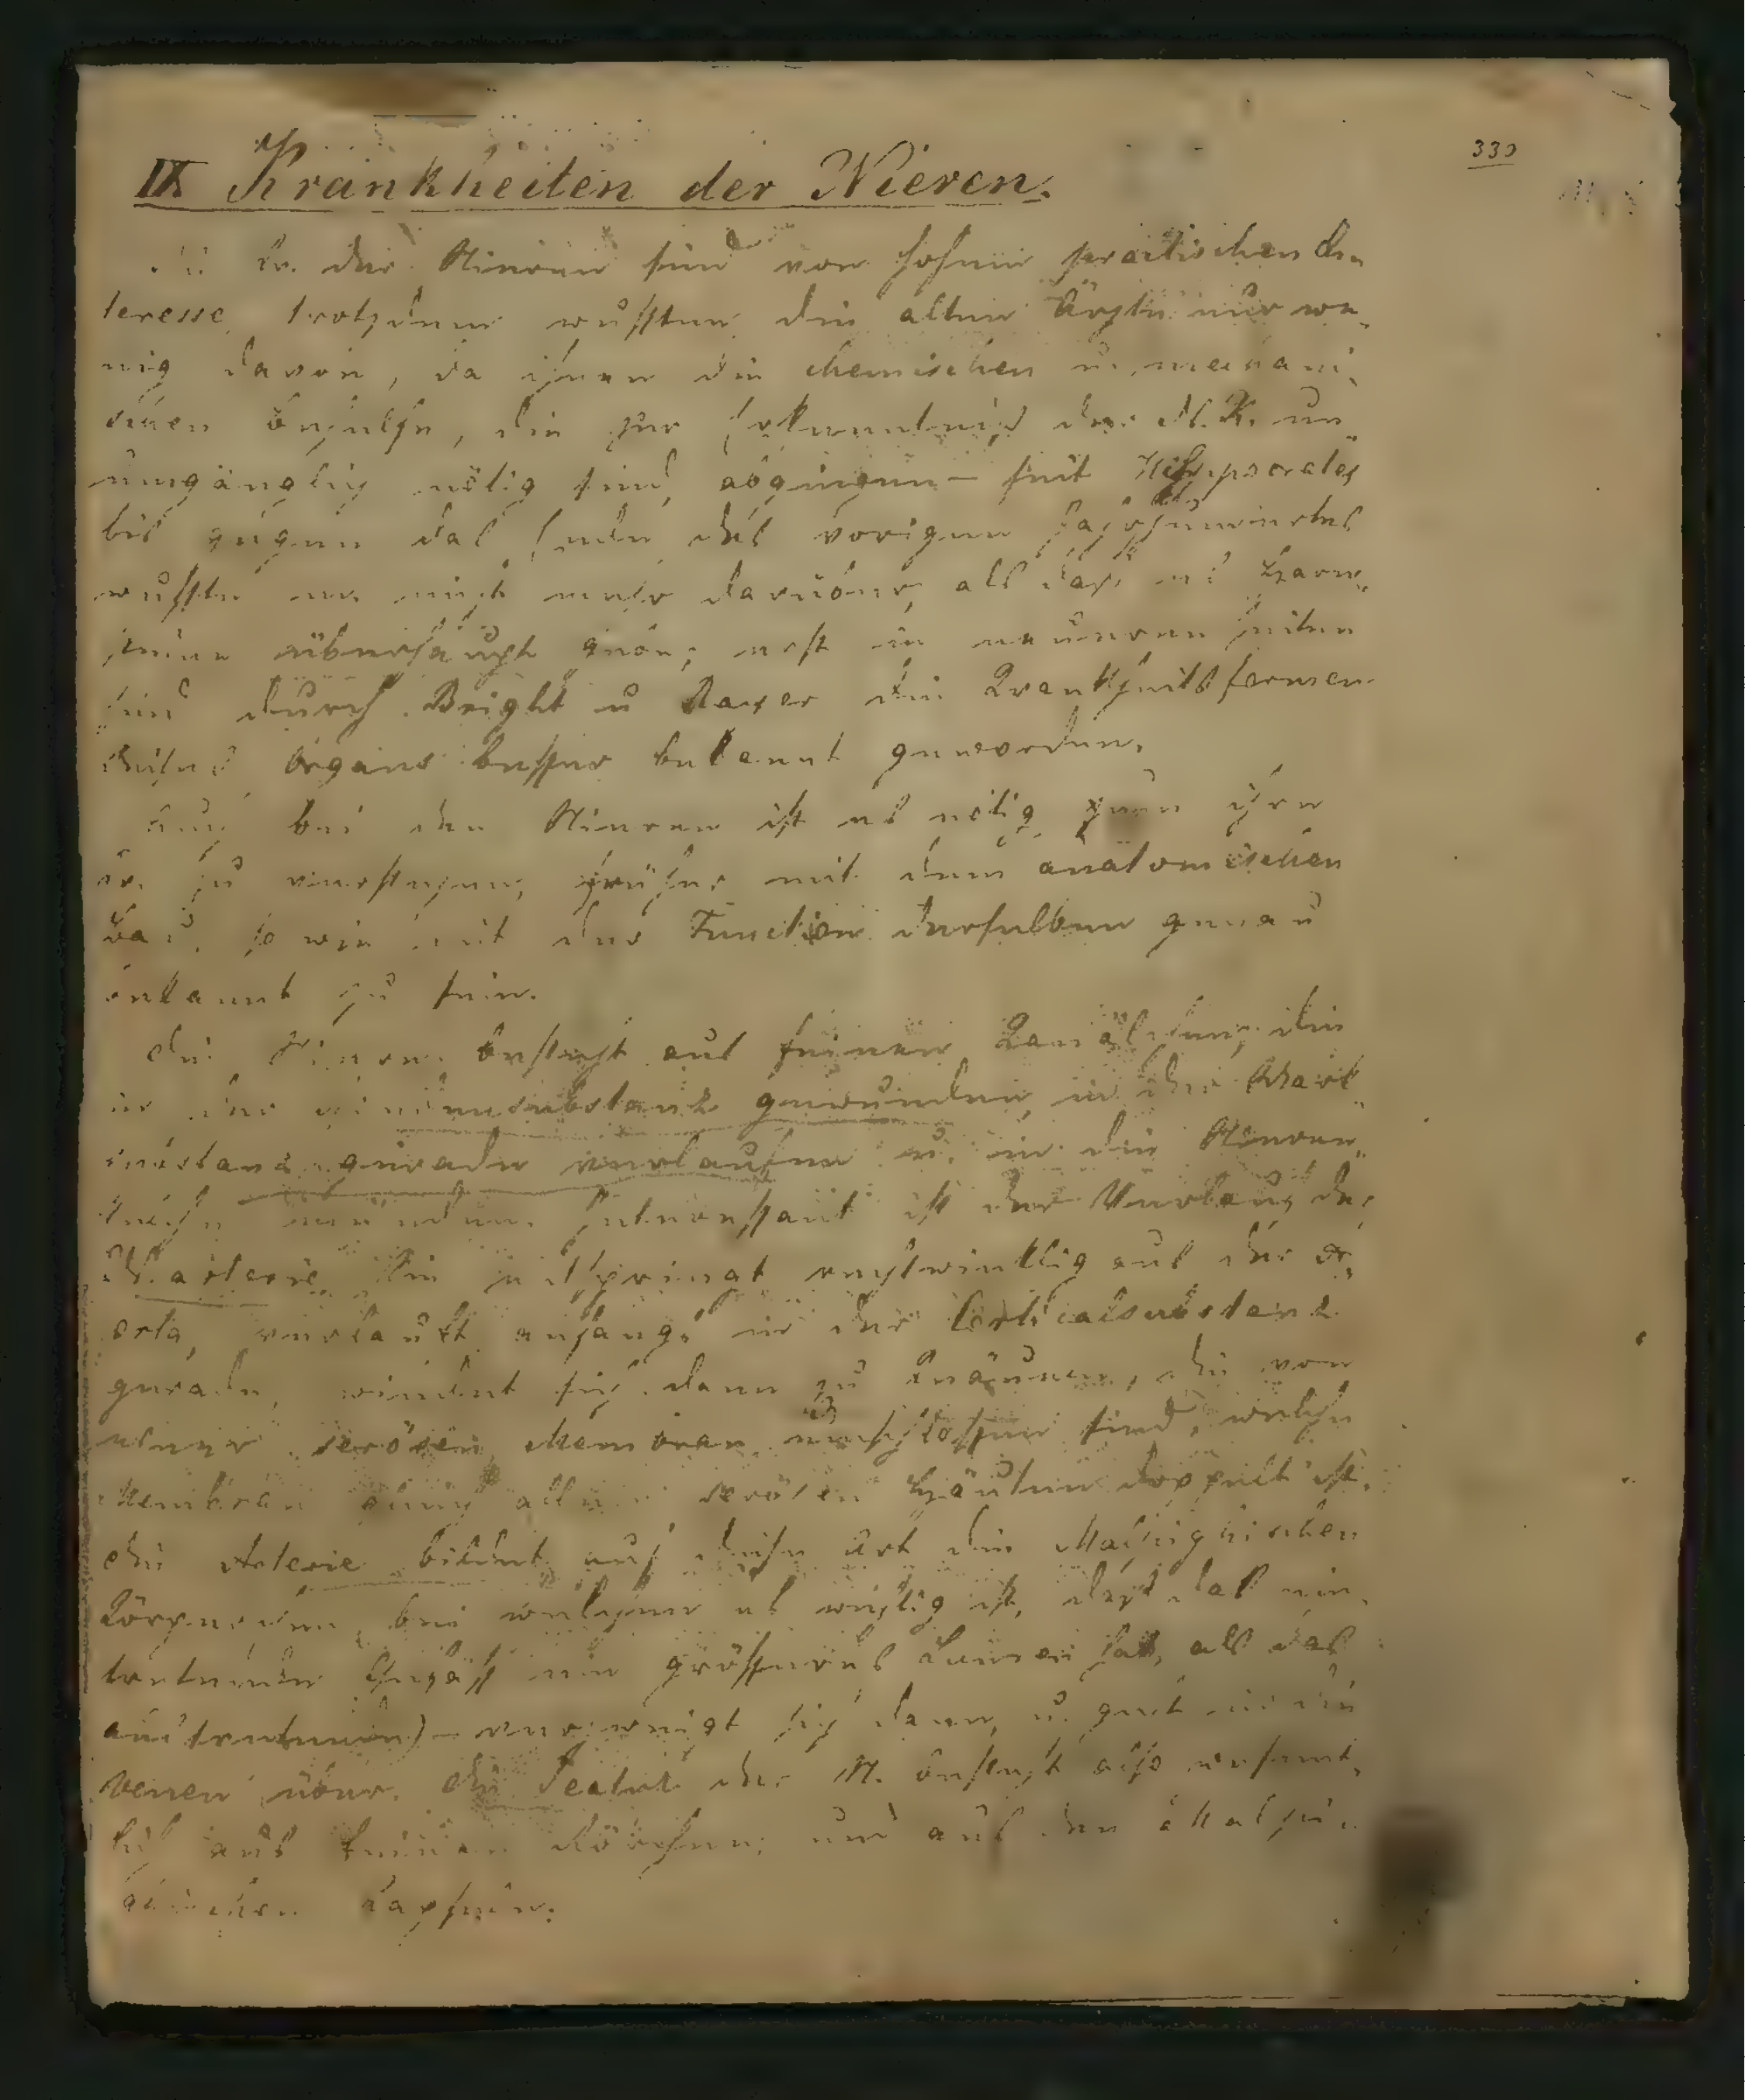 330
IX Krankheiten der Nieren.
Die Kr. der Nieren sind von hohem practischen In„
teresse, trotzdem wußten die alten Ärzte nur we„
nig davon, da ihnen die chemischen u. mechani„
schen Behelfe, die zur Erkenntniß der N. K. un„
umgänglich nötig sind, abgingen – seit Hippocrates
bis gegen das Ende des vorigen Jahrhundertes
wußte man nicht mehr darüber, als daß es Harn„
steine überhaupt gebe; erst in neueren Zeiten
sind durch Bright u Rayer die Krankheitsformen
dieses Organs besser bekannt geworden.
Auch bei den Nieren ist es nötig, ihre
Kr. zu verstehen, früher mit dem anatomischen
Bau, so wie mit der Function derselben genau
bekannt zu sein.
Die Nieren besteht aus feinen Kanälchen, die
in der substanz gewunden, in der Mark„
substanz gerade verlaufen u. in die Nieren„
kelche münden. Interessant ist der Verlauf der
N. arterie. Sie entspringt rechtwinklig aus der A„
orta, verlauft anfangs in der Corticalsubstanz
gerade, windet sich dann zu Knäueln, die von
einer serösen Membran umschlossen sind, welche
Membran gleich allen serösen Häuten doppelt ist.
Die Arterie bildet auf diese Art die Malpighischen
Körperchen, bei welchen es wichtig ist, daß das ein„
tretende Gefäß ein größeres Lumen hat, als das
austretende) – verzweigt sich dann, u. geht in die
Venen über. Die Textur der N. besteht also wesent„
lich aus feinen Röhrchen, und aus den Malpi„
ghischen Kapseln.